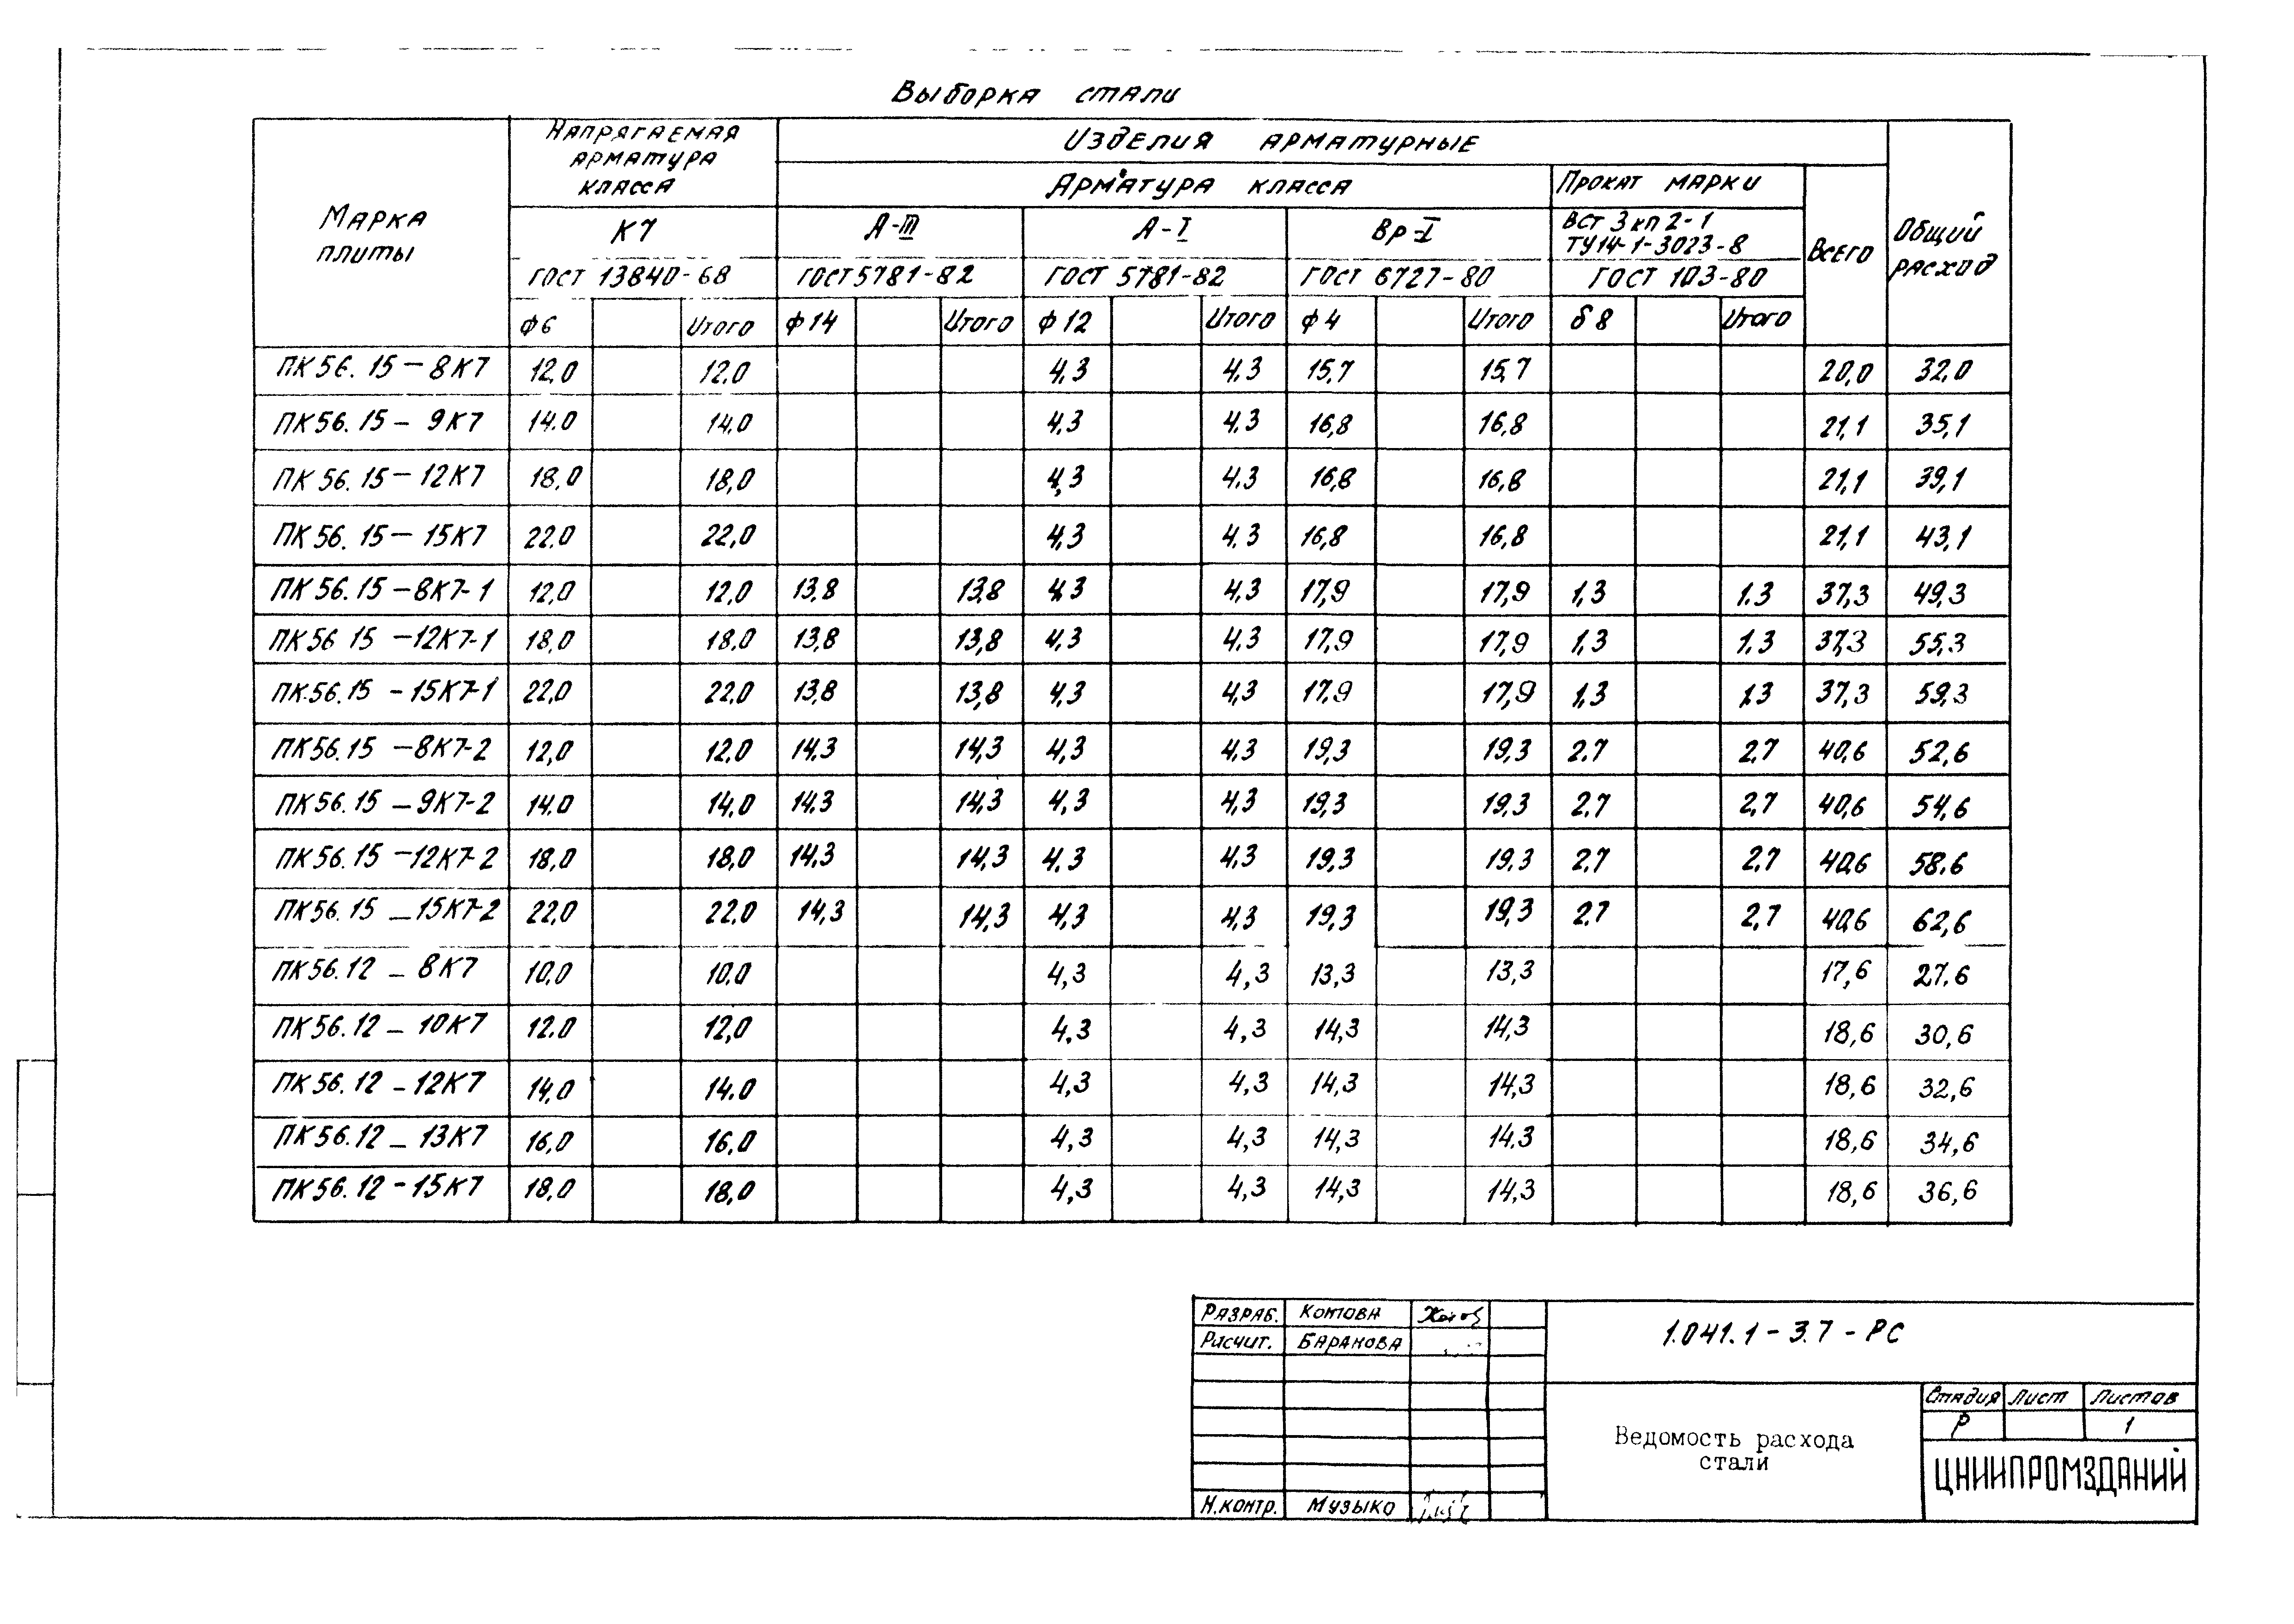 Выборка стали
Марка плиты
Напрягаемая арматура класса
Изделия арматурные
Общий расход
Арматура класса
Прокат марки
Всего
К7
А-III
А-I
Вр-I
ВСт 3кп 2-1
ТУ14-1-3023-8
ГОСТ 13840-68
ГОСТ 5781-82
ГОСТ 5781-82
ГОСТ 6727-80
ГОСТ 103-80
ф6 Итого ф14 Итого ф12 Итого ф4 Итого δ8 Итого
ПК56.15-8К7 12,0 12,0 4,3 4,3 15,7 15,7 20,0 32,0
ПК56.15-9К7 14.0 14,0 4,3 4,3 16,8 16,8 21,1 35,1
ПК56.15-12К7 18,0 18,0 4,3 4.3 16,8 16,8 21,1 39,1
ПК56.15-15К7 22,0 22,0 4,3 4,3 16,8 16,8 21,1 43,1
ПК56.15-8К7-1 12,0 12,0 13,8 13,8 4,3 4,3 17,9 17,9 1,3 1.3 37,3 49,3
ПК56 15-12К7-1 18,0 18,0 13,8 13,8 4,3 4,3 17,9 17,9 1,3 1.3 37,3 55,3
ПК56.15-15К7-1 22,0 22,0 13,8 13,8 4,3 4,3 17,9 17,9 1,3 1,3 37,3 59,3
ПК56.15-8К7-2 12,0 12,0 14,3 14,3 4,3 4,3 19,3 19,3 2.7 2.7 40,6 52,6
ПК56.15-9К7-2 14,0 14,0 14,3 14,3 4,3 4,3 19,3 19,3 2,7 2,7 40,6 54,6
ПК56.15-12К7-2 18,0 18,0 14,3 14,3 4,3 4,3 19,3 19,3 2,7 2,7 40,6 58,6
ПК56.15-15К7-2 22,0 22,0 14,3 14,3 4,3 4,3 19,3 19,3 2.7 2,7 40,6 62,6
ПК56.12-8К7 10,0 10,0 4,3 4,3 13,3 13,3 17,6 27,6
ПК56.12-10К7 12.0 12,0 4,3 4,3 14,3 14,3 18,6 30,6
ПК56.12-12К7 14,0 14.0 4,3 4,3 14,3 14,3 18,6 32,6
ПК56.12-13К7 16,0 16,0 4,3 4,3 14,3 14,3 18,6 34,6
ПК56.12-15К7 18,0 18,0 4,3 4,3 14,3 14,3 18,6 36,6
Разраб. Котова
Расчит. Баранова
Н.контр. Музыко
1.041.1-3.7-РС
Ведомость расхода
стали
Стадия Лист Листов
Р 1
ЦНИИПРОМЗДАНИЙ